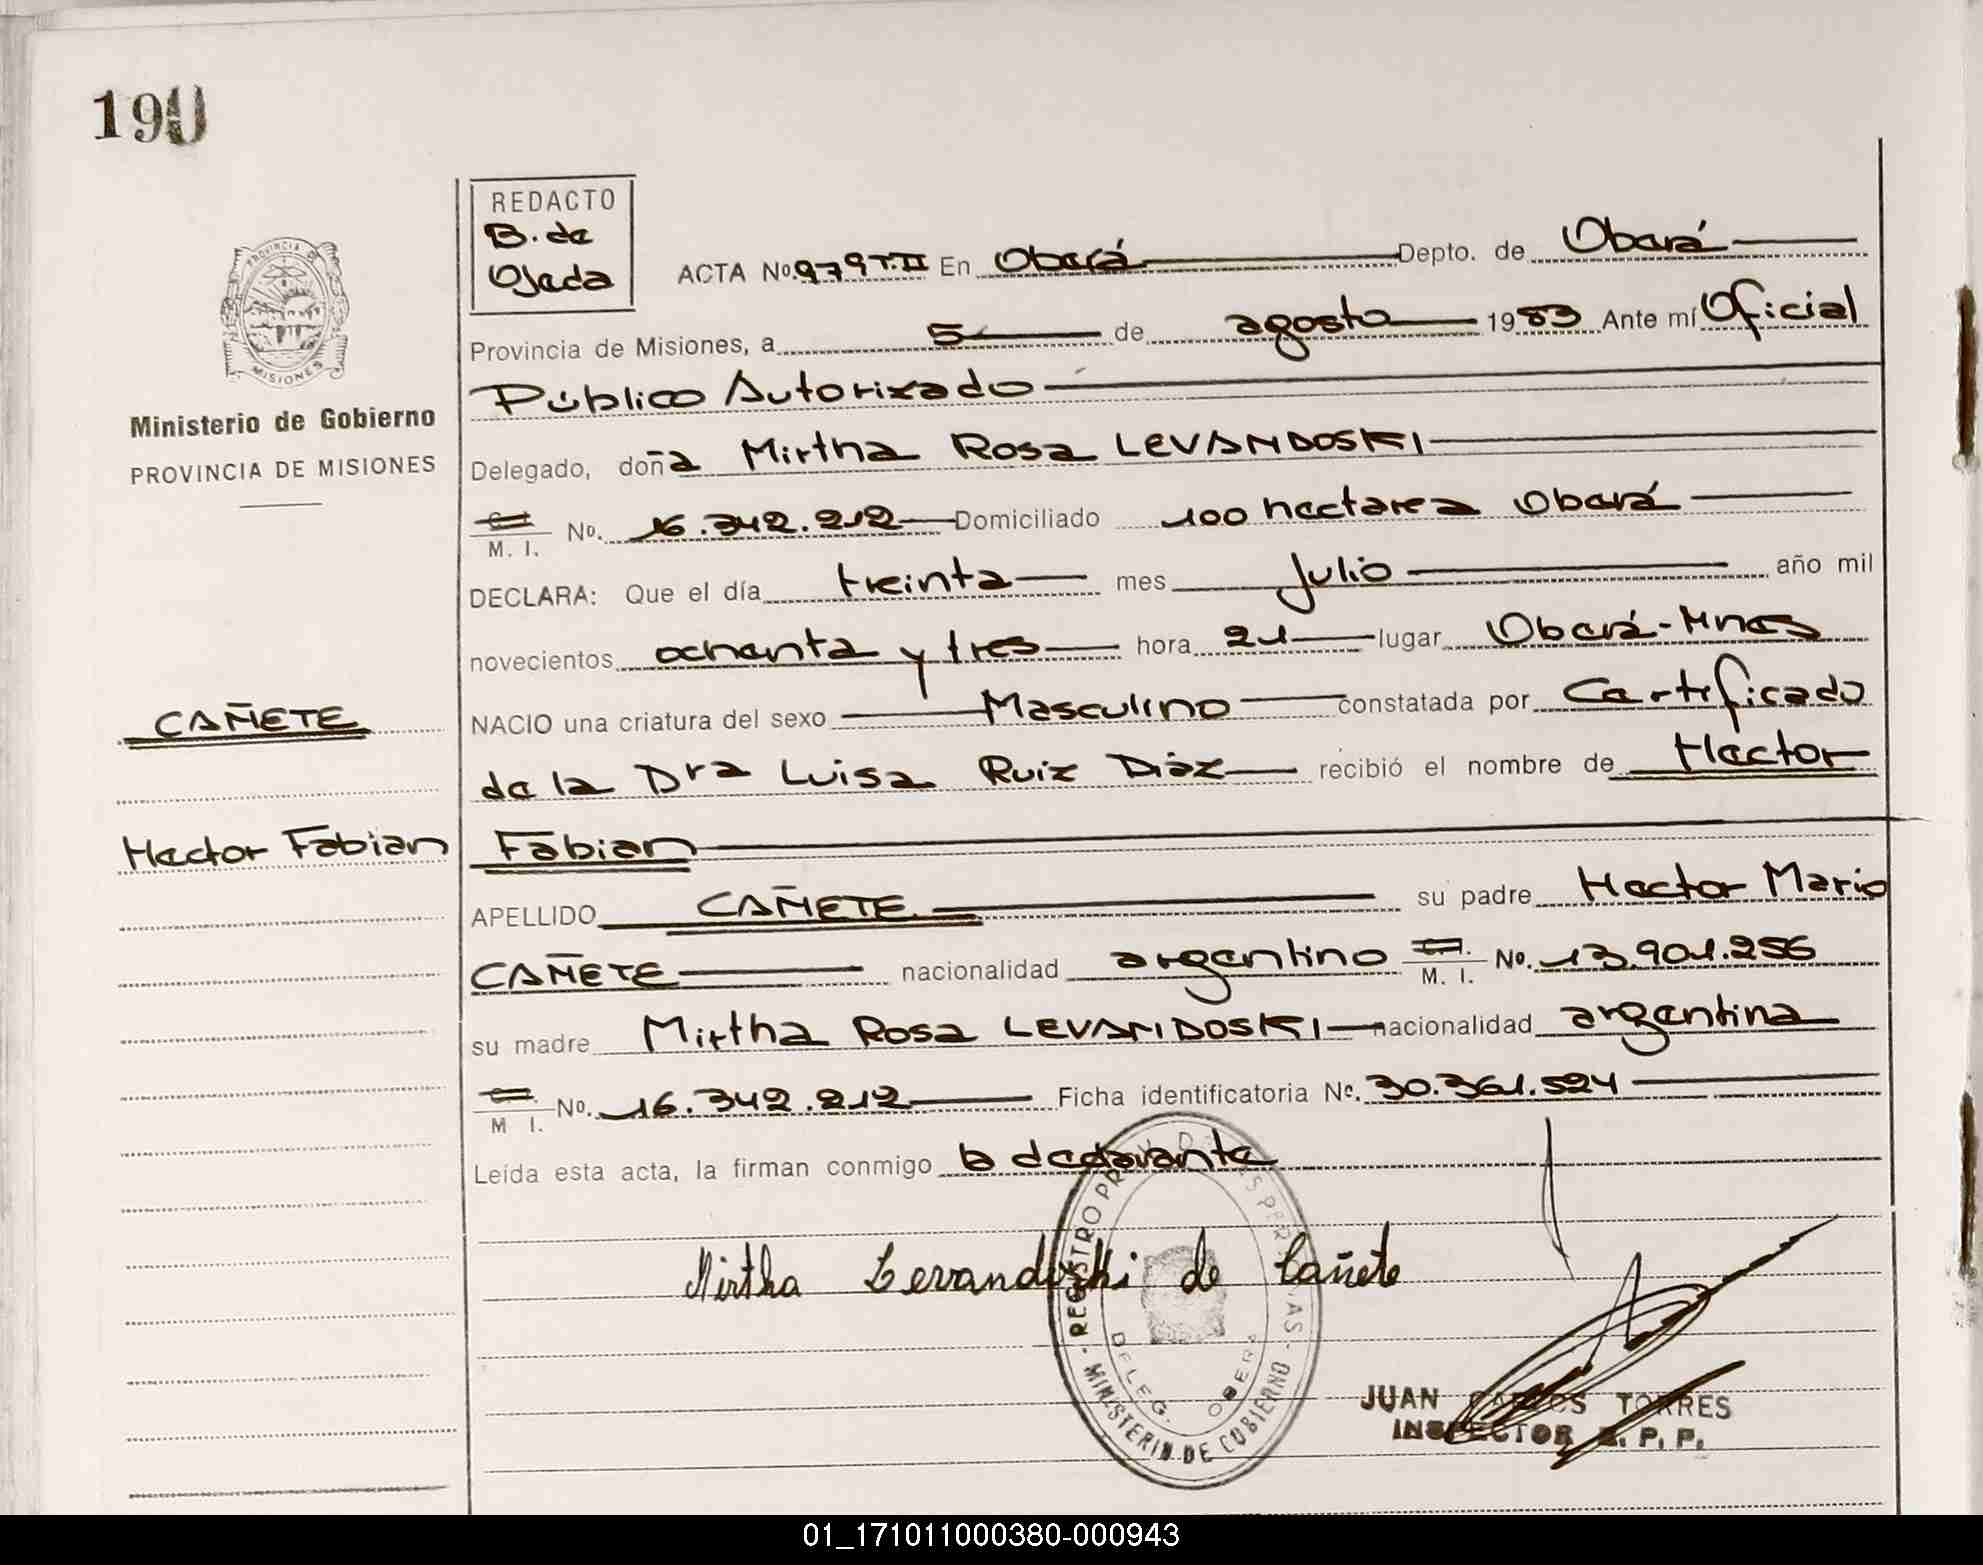 190
REDACTO
B. de
Ojeda
PROVINCIA DE
MISIONES
Ministerio de Gobierno
PROVINCIA DE MISIONES
ACTA No. 979 T.II En Oberá Depto. de Oberá
Provincia de Misiones, a 5 de agosto 1983 Ante mí Oficial
Público Autorizado
Delegado, doña Mirtha Rosa LEVANDOSKI
M. I. No. 16.342.212 Domiciliado 100 hectarea Oberá
DECLARA: Que el día treinta mes Julio año mil
novecientos ochenta y tres hora 21 lugar Oberá-Mnes
CAÑETE
NACIO una criatura del sexo Masculino constatada por Certificado
de la Dra Luisa Ruiz Diaz recibió el nombre de Hector
Hector Fabian
Fabian
APELLIDO CAÑETE su padre Hector Mario
CAÑETE nacionalidad argentino M. I. No. 13.901.256
su madre Mirtha Rosa LEVANDOSKI nacionalidad argentina
M I. No. 16.342.212 Ficha identificatoria No. 30.361.524
Leída esta acta, la firman conmigo la declarante
Mirtha Levandoski de Cañete
REGISTRO PROV. DE LAS PERSONAS - MINISTERIO DE GOBIERNO -
DELEG. OBERA
JUAN CARLOS TORRES
INSPECTOR R. P. P.
01_171011000380-000943